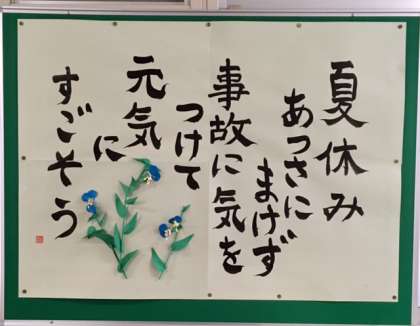 夏休み
あつさに
まけず
事故に気を
つけて
元気
に
すごそう